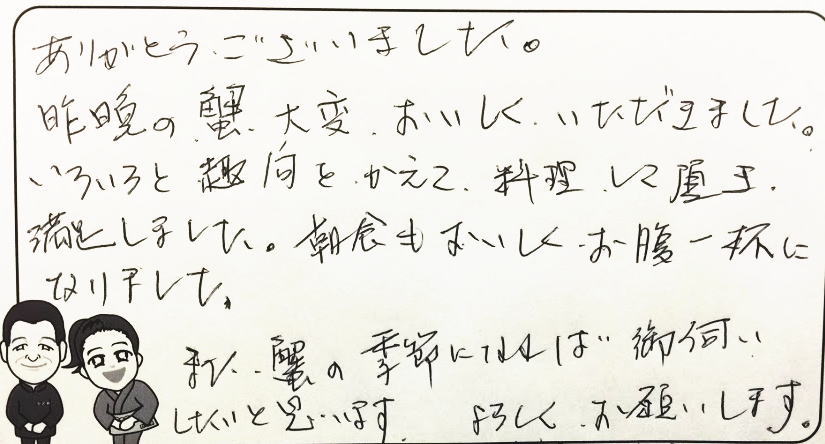 ありがとうございました。
昨晩の蟹大変おいしくいただきました。
いろいろと趣向をかえて、料理して頂き、
満足しました。朝食もおいしくお腹一杯に
なりました。
また、蟹の季節になれば御伺い
したいと思います。よろしくお願いします。